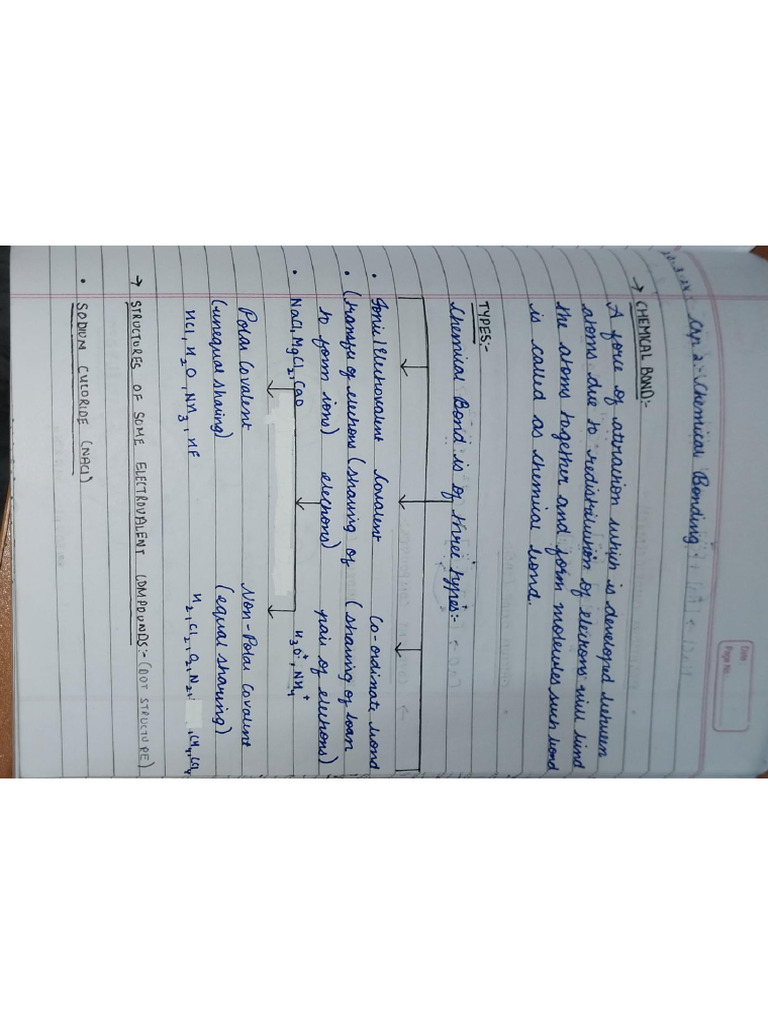 Date
Page No.
Chp. 2:- Chemical Bonding
→ CHEMICAL BOND:-
A force of attraction which is developed between
atoms due to redistribution of electrons will bind
the atoms together and form molecules such bond
is called as chemical bond.
TYPES:-
Chemical Bond is of three types:-
• Ionic/Electrovalent Covalent Co-ordinate bond
• (transfer of electrons (sharing of (sharing of loan
to form ions) electrons) pair of electrons)
• NaCl, MgCl2, CaO H3O+, NH4+
Polar Covalent Non-Polar Covalent
(unequal sharing) (equal sharing)
HCl, H2O, NH3, HF H2, Cl2, O2, N2, , CH4, CCl4
→ STRUCTURES OF SOME ELECTROVALENT COMPOUNDS:- (DOT STRUCTURE)
• SODIUM CHLORIDE (NaCl)